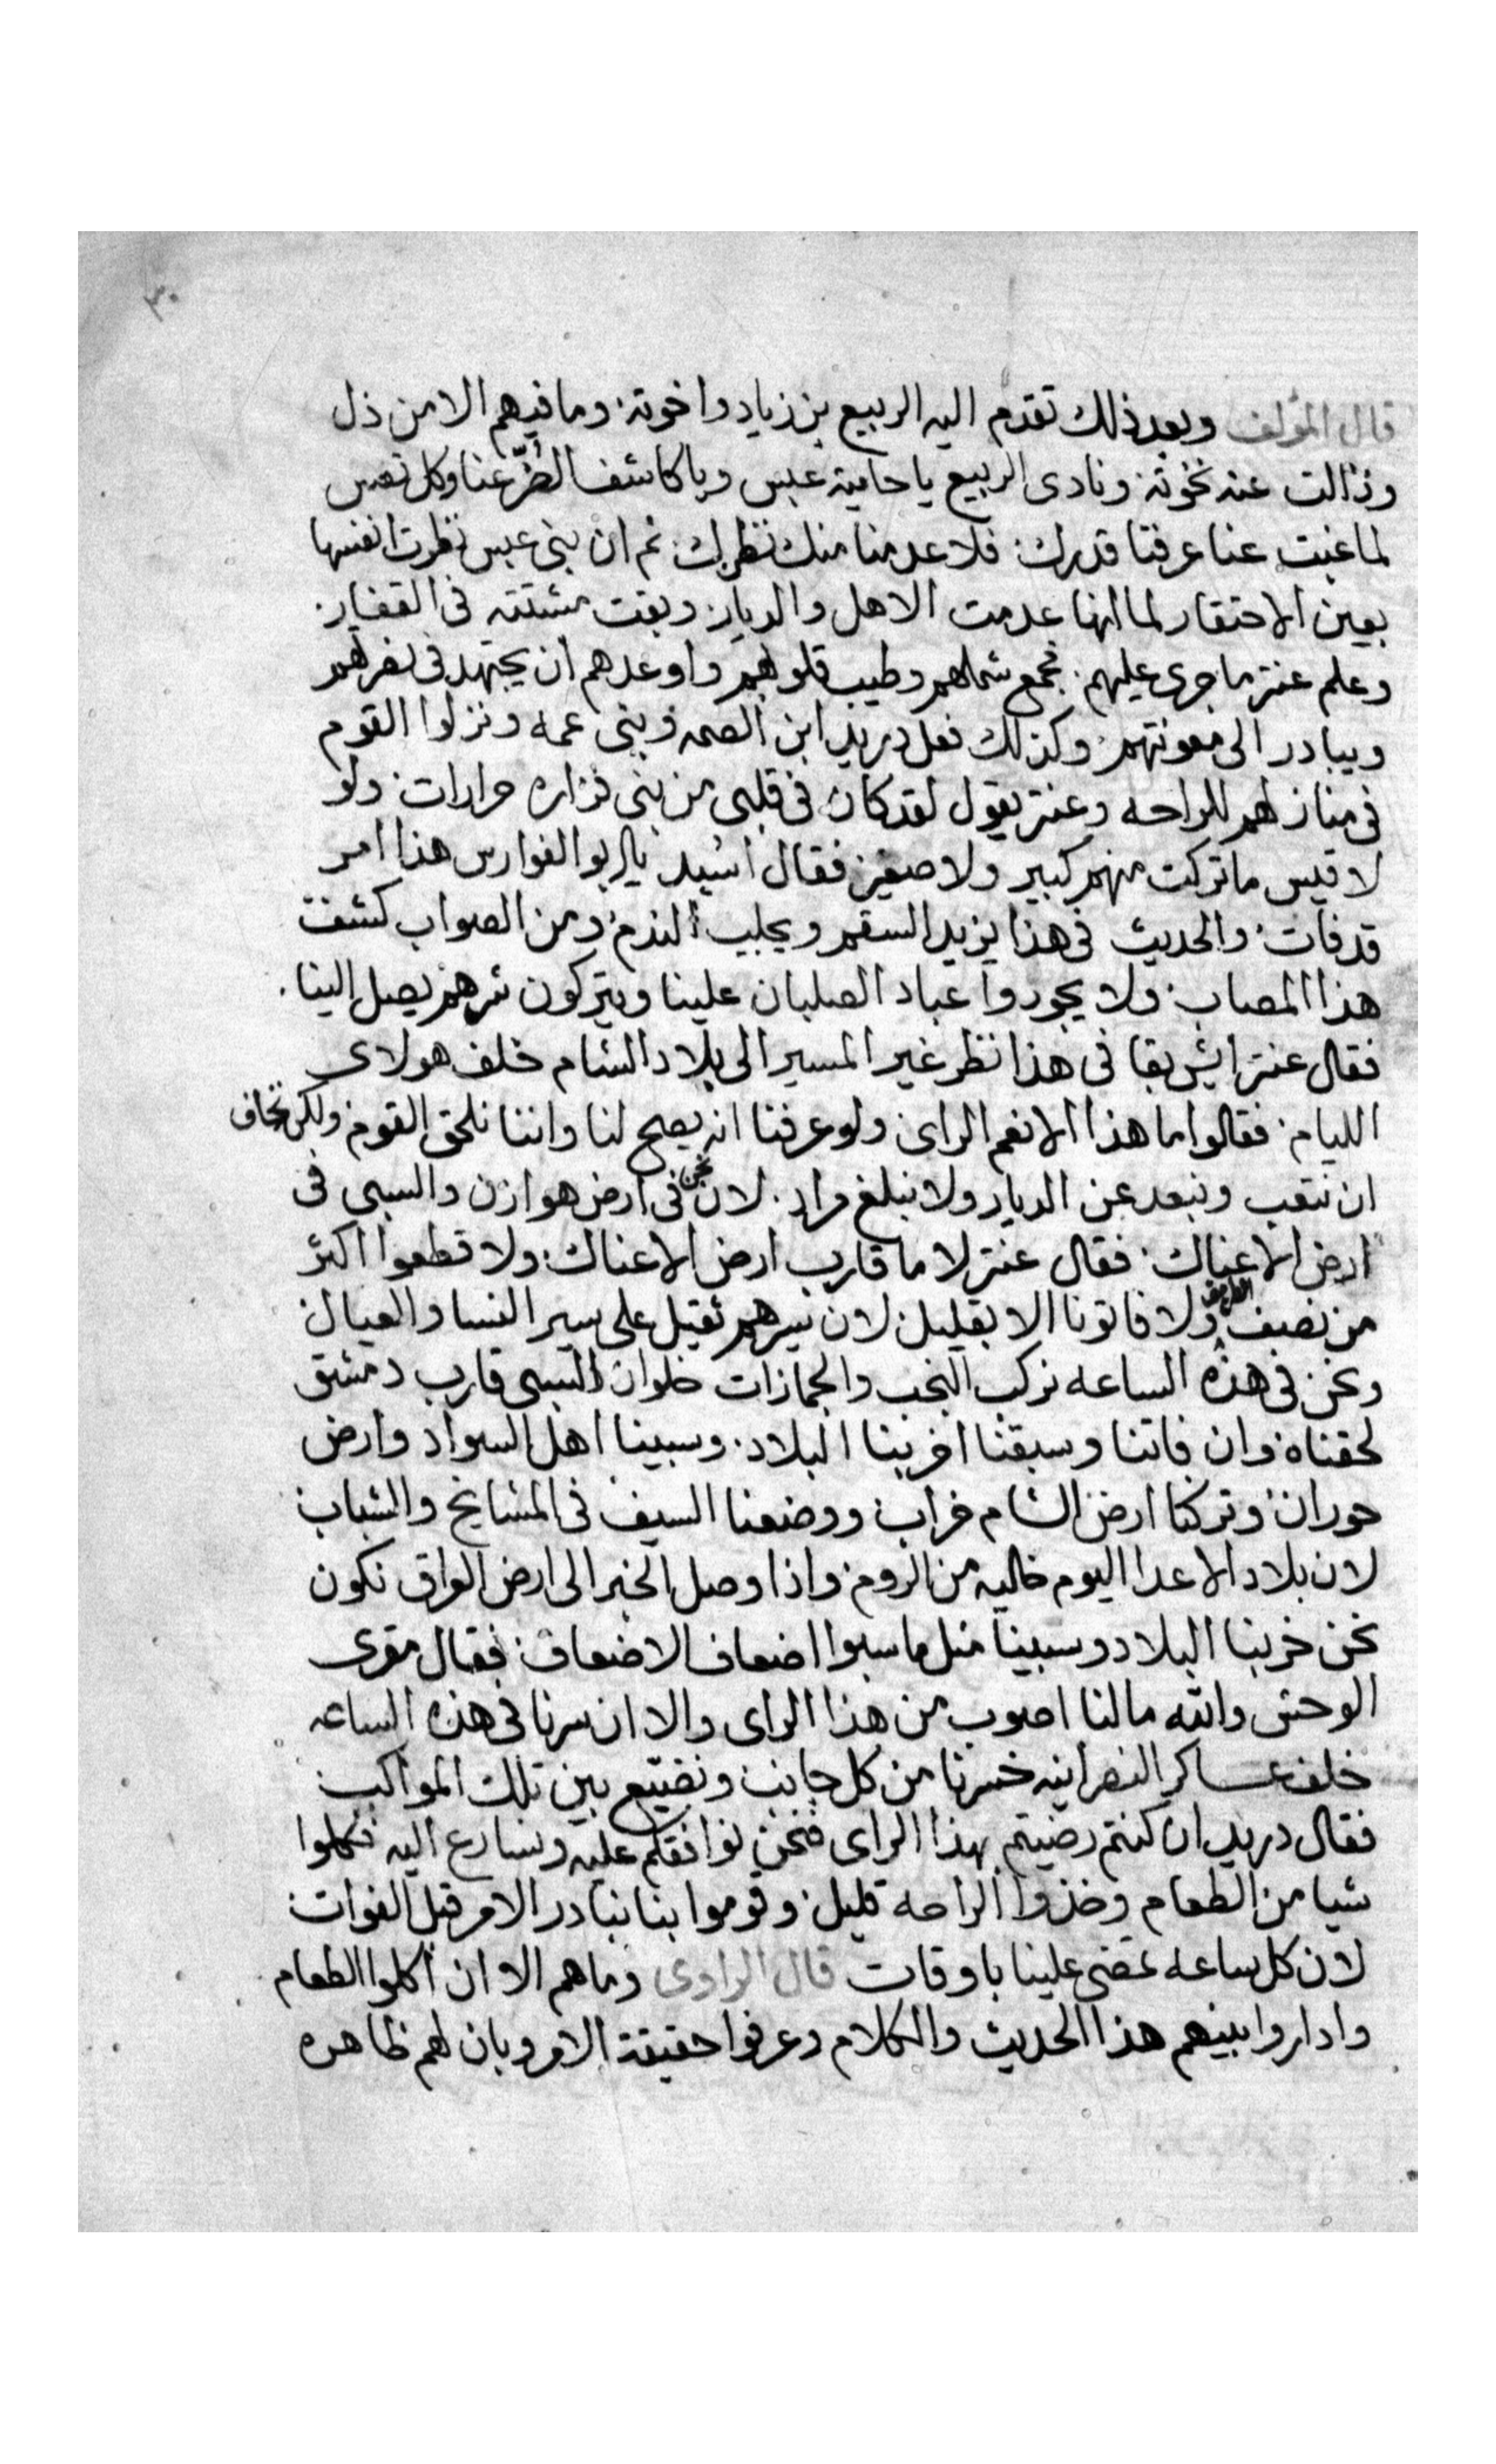 ٣٠
قال المؤلف وبعد ذلك تقدم اليه الربيع بن زياد واخوته وما فيهم الا من ذل
وزالت عنه نخوته ونادى الربيع يا حامية عبس ويا كاشف الضُرّ عنا وكل
لما غبت عنا عرفنا قدرك فلا عدمنا منك نظرك ثم ان بنى عبس نظرت انفسها
بعين الاحتقار لما انها عدمت الاهل والديار وبقت مشتته فى القفار
وعلم عنتر ما جرى عليهم فجمع شملهم وطيب قلوبهم واوعدهم ان يجتهد فى نصرهم
ويبادر الى معونتهم وكذلك فعل دريد ابن الصمه وبنى عمه ونزلوا القوم
فى منازلهم للراحه وعنتر يقول لقد كان فى قلبى من بنى فزاره حرارات ولو
لا قيس ما تركت منهم كبير ولا صغير فقال اسيد يابو الفوارس هذا امر
قد فات والحديث فى هذا يزيد السقم ويجلب الندم ومن الصواب كشفت
هذا المصاب ولا يجوروا عباد الصلبان علينا ويتركون شرهم يصل الينا
فقال عنتر ايش بقا فى هذا نظر غير المسير الى بلاد الشام خلف هولاى
الليام فقالوا ما هذا الا نعم الراى ولو عرفنا انه يصح لنا واننا نلحق القوم ولكن نخاف
ان نتعب ونبعد عن الديار ولا نبلغ مراد لان نحن فى ارض هوازن والسبى فى
ارض الاعناك فقال عنتر لا ما قارب ارض الاعناك ولا قطعوا اكثر
من نصف الطريق ولا فاتونا الا بقليل لان سيرهم ثقيل على سير النسا والعيال
ونحن فى هذه الساعه نركب النجب والجمازات فلو ان السبى قارب دمشق
لحقناه وان فاتنا وسبقنا اخربنا البلاد وسبينا اهل السواد وارض
حوران وتركنا ارض الشام خراب ووضعنا السيف فى المشايخ والشباب
لان بلاد الاعدا اليوم خاليه من الروم واذا وصل الخبر الى ارض العراق نكون
نحن خربنا البلاد وسبينا مثل ما سبوا اضعاف الاضعاف فقال مقرى
الوحش والله ما لنا اصوب من هذا الراى والا ان سرنا فى هذه الساعه
خلف عساكر النصرانيه خسرنا من كل جانب ونضيّع بين تلك المواكب
فقال دريد ان كنتم رضيتم بهذا الراى فنحن نوافقكم عليه ونسارع اليه فكلوا
شيا من الطعام وخذوا الراحه قليل وقوموا بنا نبادر الامر قبل الفوات
لان كل ساعه تمضى علينا باوقات قال الراوى وما هم الا ان اكلوا الطعام
واداروا بينهم هذا الحديث والكلام وعرفوا حقيقة الامر وبان لهم ظاهره